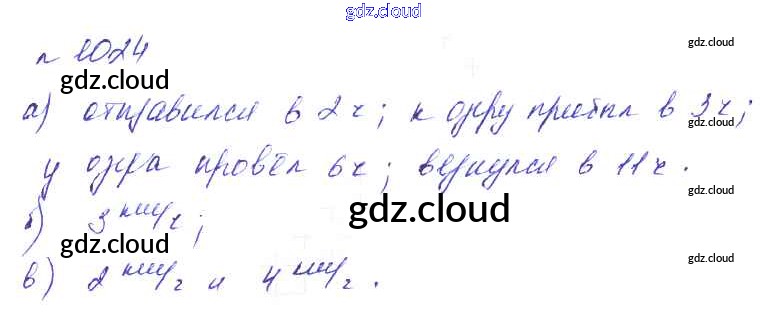 gdz.cloud
n 1024 gdz.cloud
gdz.cloud
а) отправился в 2 ч; к озеру прибыл в 3 ч;
gdz.cloud
у озера провёл 6 ч; вернулся в 11 ч.
gdz.cloud
б) 3 км/ч; gdz.cloud
gdz.cloud
в) 2 км/ч и 4 км/ч.
gdz.cloud